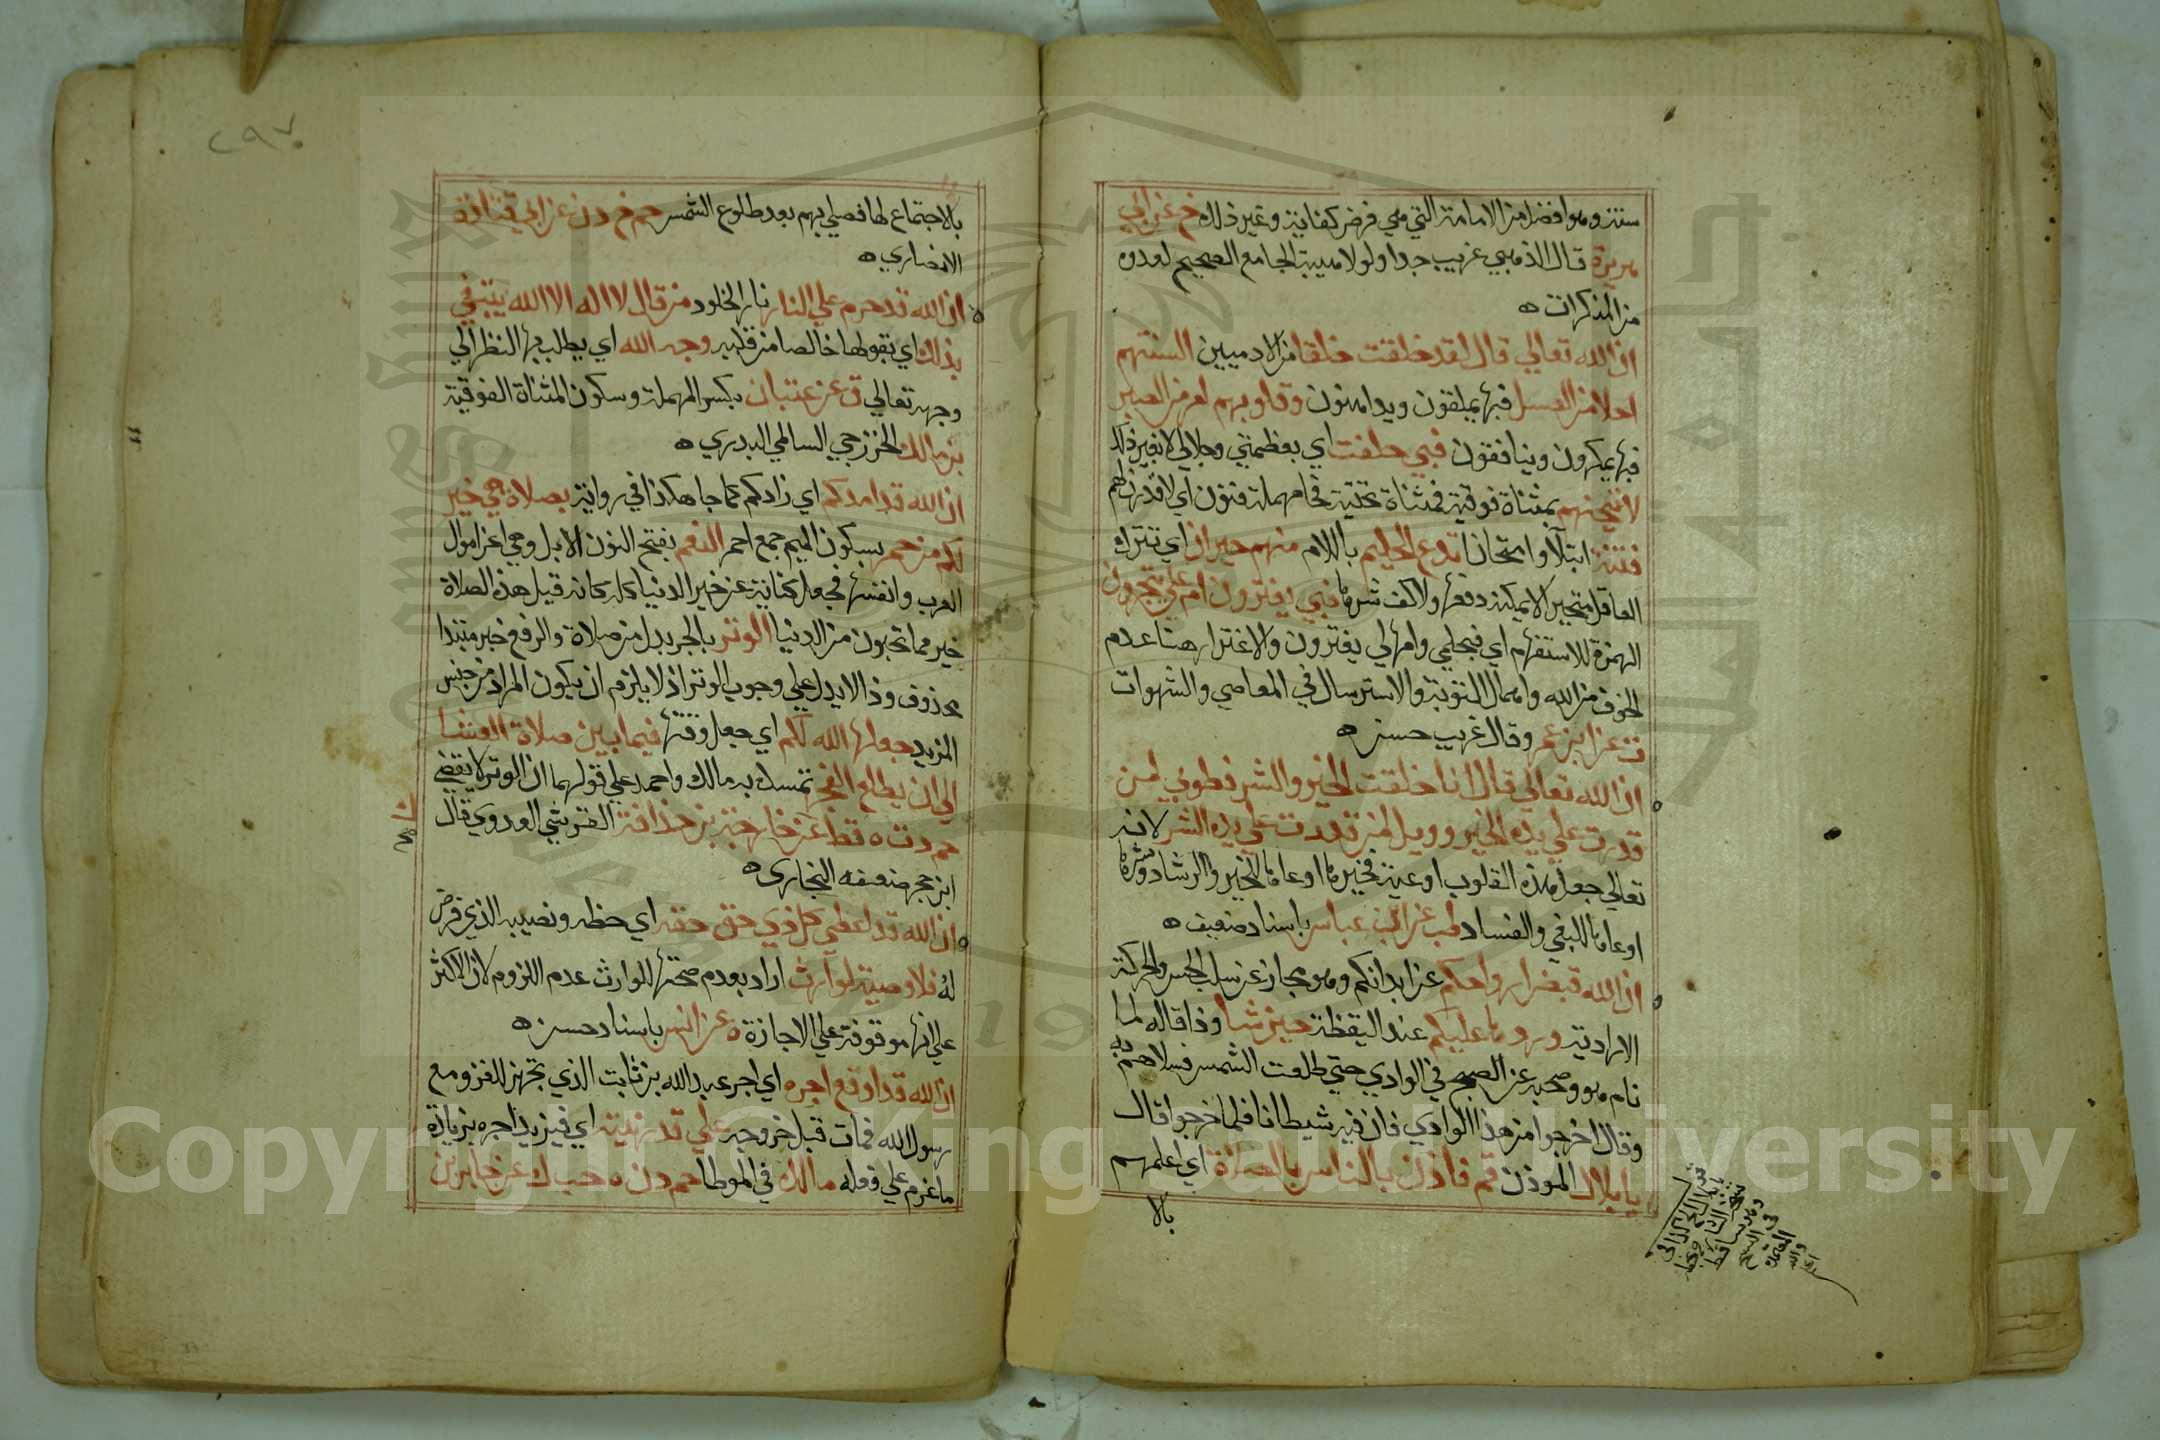 سنته وهو افضل من الامامة التي هي فرض كفاية وغير ذلك خ عن ابي
هريرة قال الذهبي غريب جدا ولولا هيبة الجامع الصحيح لعدوه
من المنكرات ه
ان الله تعالي قال لقد خلقت خلقا من الادميين السنتهم
احلا من العسل فبها يملقون ويداهنون وقلوبهم امر من الصبر
فبها يمكرون وينافقون فبي حلفت اي بعظمتي وجلالي لا بغير ذلك
لاتيحنهم بمثناة فوقية فمثناة تحتية فحا مهملة فنون اي لاقدرن لهم
فتنة ابتلآ وامتحانا تدع الحليم باللام منهم حيران اي تترك
العاقل متحيرا لا يمكنه دفعها ولا كف شرها فبي يغترون ام علي يتجرون
الهمزة للاستفهام اي فبحلمي وامهالي يغترون والاغترار هنا عدم
الخوف من الله واهمال التوبة والاسترسال في المعاصي والشهوات
ت عن ابن عمر وقال غريب حسن ه
ان الله تعالي قال انا خلقت الخير والشر فطوبي لمن
قدرت علي يده الخير وويل لمن قدرت علي يده الشر لانه
تعالي جعل هذه القلوب اوعية فخيرها اوعاها للخير والرشاد وشرها
اوعاها للبغي والفساد طب عن ابن عباس باسناد ضعيف ه
ان الله قبض ارواحكم عن ابدانكم وهو مجاز عن سلب الحس والحركة
الارادية وردها عليكم عند اليقظة حين شا وذا قاله لما
نام هو وصحبه عن الصبح في الوادي حتي طلعت الشمس فسلاهم به
وقال اخرجوا من هذا الوادي فان فيه شيطانا فلما خرجوا قال
يا بلال الموذن قم فاذن بالناس بالصلاة اي اعلمهم
بالا
٢٩٧
بالاجتماع لها فصلي بهم بعد طلوع الشمس حم خ د ن عن ابي قتادة
الانصاري ه
ان الله قد حرم علي النار نار الخلود من قال لا اله الا الله يبتغي
بذلك اي بقولها خالصا من قلبه وجه الله اي يطلب بها النظر الي
وجهه تعالي ق عن عتبان بكسر المهملة وسكون المثناة الفوقية
بن مالك الخزرجي السالمي البدري ه
ان الله قد امدكم اي زادكم كما جا هكذا في رواية بصلاة هي خير
لكم من حمر بسكون الميم جمع احمر النعم بفتح النون الابل وهي اعز اموال
العرب وانفسها فجعل كناية عن خير الدنيا كله كانه قيل هذه الصلاة
خير مما تحبون من الدنيا الوتر بالجر بدل من صلاة والرفع خبر مبتدا
محذوف وذا لا يدل علي وجوب الوتر اذ لا يلزم ان يكون المراد من جنس
المزيد جعلها الله لكم اي جعل وقتها فيما بين صلاة العشا
الي ان يطلع الفجر تمسك به مالك واحمد علي قولهما ان الوتر لا يقضي
حم د ت ه قط ك عن خارجة بن حذافة القرشي العدوي قال
ابن حجر ضعفه البخاري ه
ان الله قد اعطي كل ذي حق حقه اي حظه ونصيبه الذي فرض
له فلا وصية لوارث اراد بعدم صحتها للوارث عدم اللزوم لان الاكثر
علي انها موقوفة علي الاجازة ه عن انس باسناد حسن ه
ان الله قد اوقع اجره اي اجر عبد الله بن ثابت الذي تجهز للغزو مع
رسول الله فمات قبل خروجه علي قدر نيته اي فيزيد اجره بزيادة
ما عزم علي فعله مالك في الموطا حم د ن ه حب ك عن جابر بن